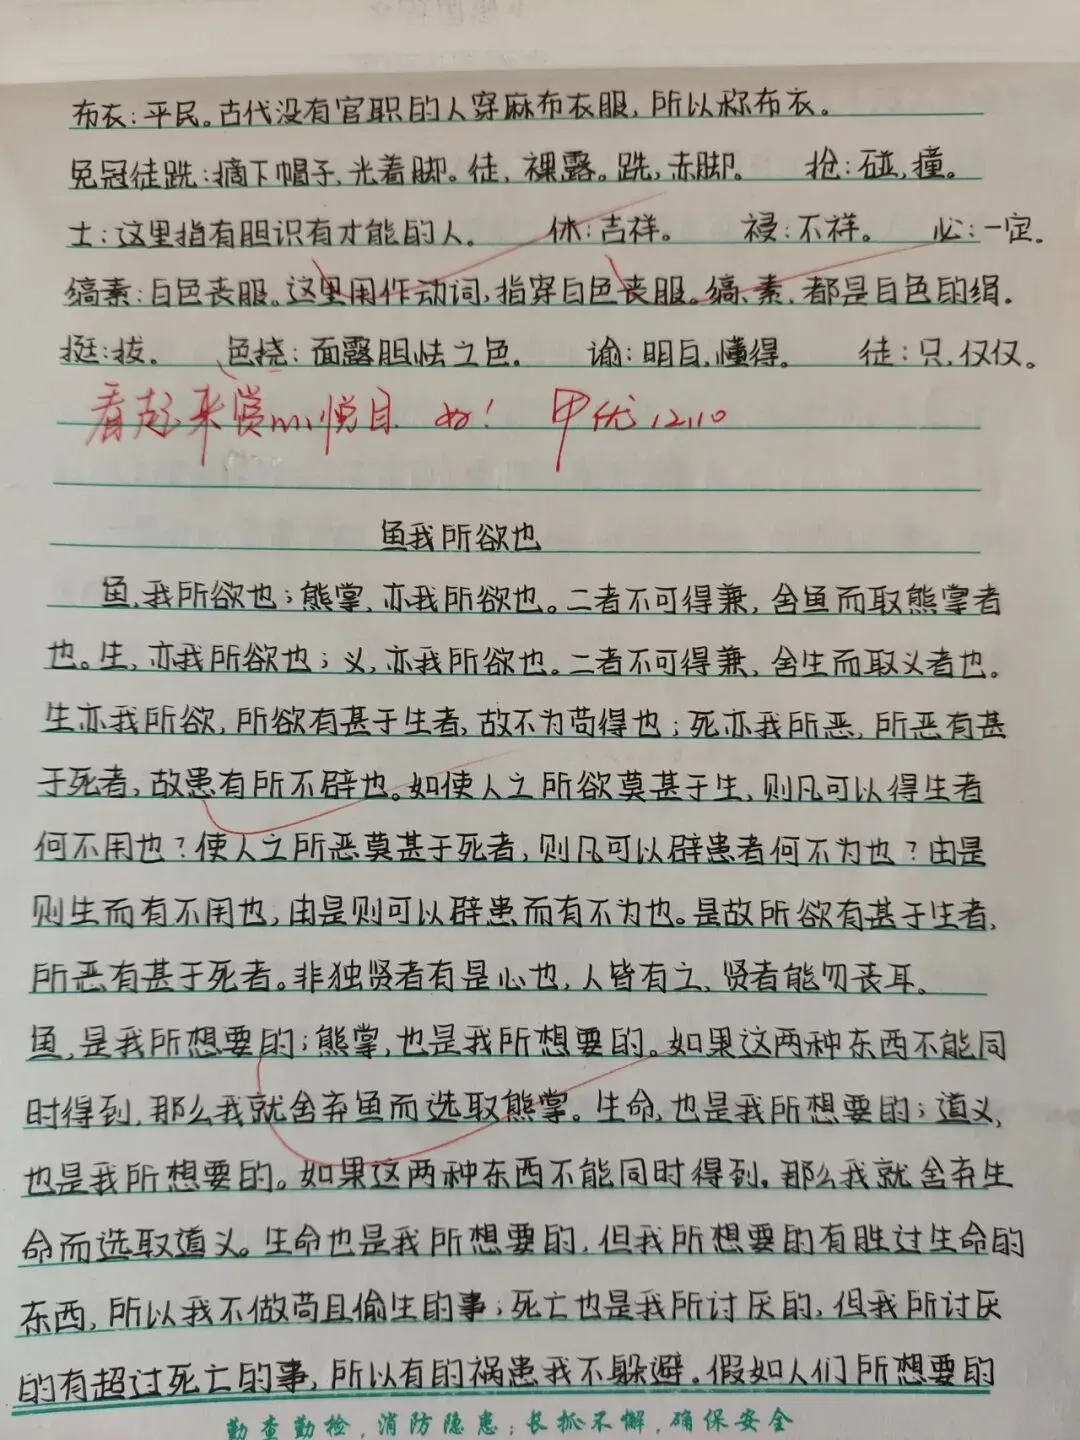 布衣：平民。古代没有官职的人穿麻布衣服，所以称布衣。
免冠徒跣：摘下帽子，光着脚。徒，裸露。跣，赤脚。 抢：碰，撞。
士：这里指有胆识有才能的人。 休：吉祥。 祲：不祥。 必：一定。
缟素：白色丧服。这里用作动词，指穿白色丧服。缟、素，都是白色的绢。
挺：拔。 色挠：面露胆怯之色。 谕：明白，懂得。 徒：只，仅仅。
看起来赏心悦目 好！ 甲优 12.10
鱼我所欲也
鱼，我所欲也；熊掌，亦我所欲也。二者不可得兼，舍鱼而取熊掌者
也。生，亦我所欲也；义，亦我所欲也。二者不可得兼，舍生而取义者也。
生亦我所欲，所欲有甚于生者，故不为苟得也；死亦我所恶，所恶有甚
于死者，故患有所不辟也。如使人之所欲莫甚于生，则凡可以得生者
何不用也？使人之所恶莫甚于死者，则凡可以辟患者何不为也？由是
则生而有不用也，由是则可以辟患而有不为也。是故所欲有甚于生者，
所恶有甚于死者。非独贤者有是心也，人皆有之，贤者能勿丧耳。
鱼，是我所想要的；熊掌，也是我所想要的。如果这两种东西不能同
时得到，那么我就舍弃鱼而选取熊掌。生命，也是我所想要的；道义，
也是我所想要的。如果这两种东西不能同时得到。那么我就舍弃生
命而选取道义。生命也是我所想要的，但我所想要的有胜过生命的
东西，所以我不做苟且偷生的事；死亡也是我所讨厌的，但我所讨厌
的有超过死亡的事，所以有的祸患我不躲避。假如人们所想要的
勤查勤检，消防隐患；长抓不懈，确保安全